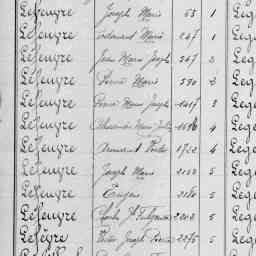 Lefeuvre Joseph Marie 53 1 Leg
Lefeuvre Edouard Marie 247 1 Leg
Lefeuvre Jean Marie Joseph 367 2 Leg
Lefeuvre Pierre Marie 590 2 Leg
Lefeuvre Pierre Marie Joseph 1017 3 Leg
Lefeuvre Alexandre Marie 4 Lege
Lefeuvre Armand Victor 1752 4 Lege
Lefeuvre Joseph Marie 2150 5 Lege
Lefeuvre Eugène 5 Lege
Lefeuvre Charles 5 Lege
Lefèvre Victor Joseph Pierre 2275 5 Lege